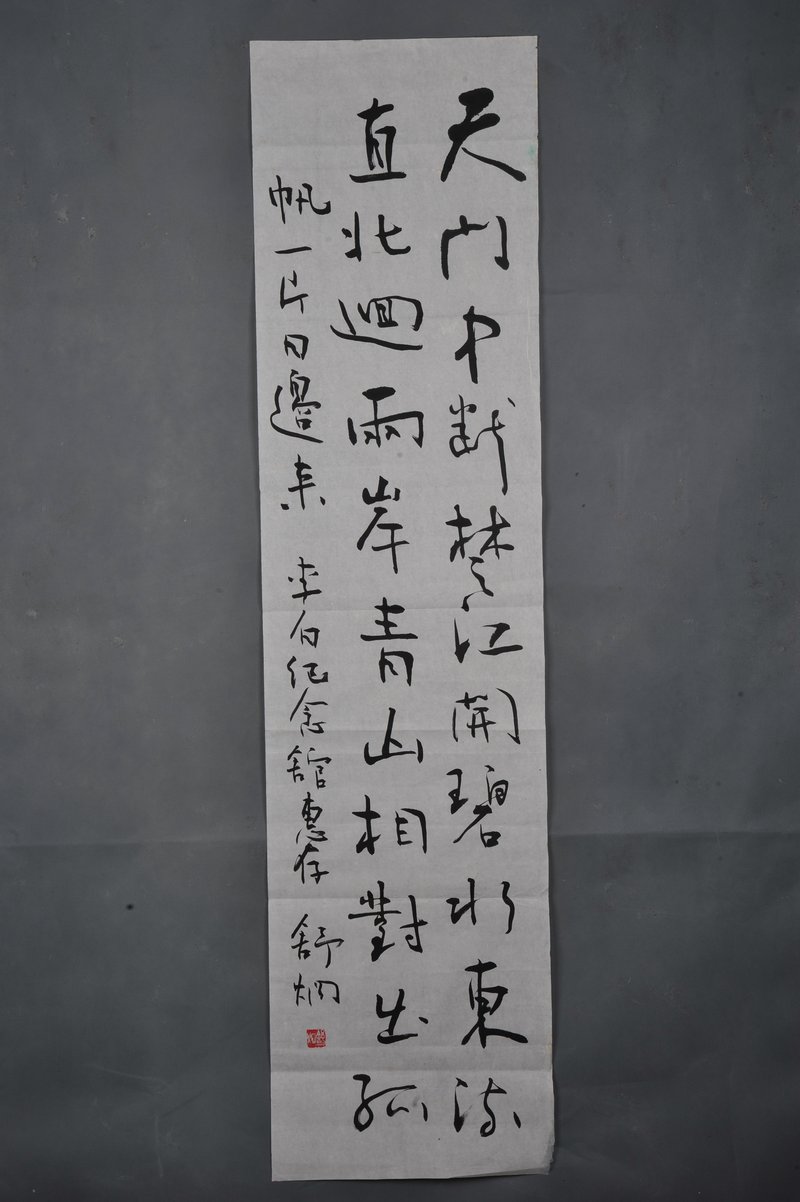 天門中斷楚江開碧水東流
直北迴兩岸青山相對出孤
帆一片日邊来 李白纪念舘惠存 舒炯